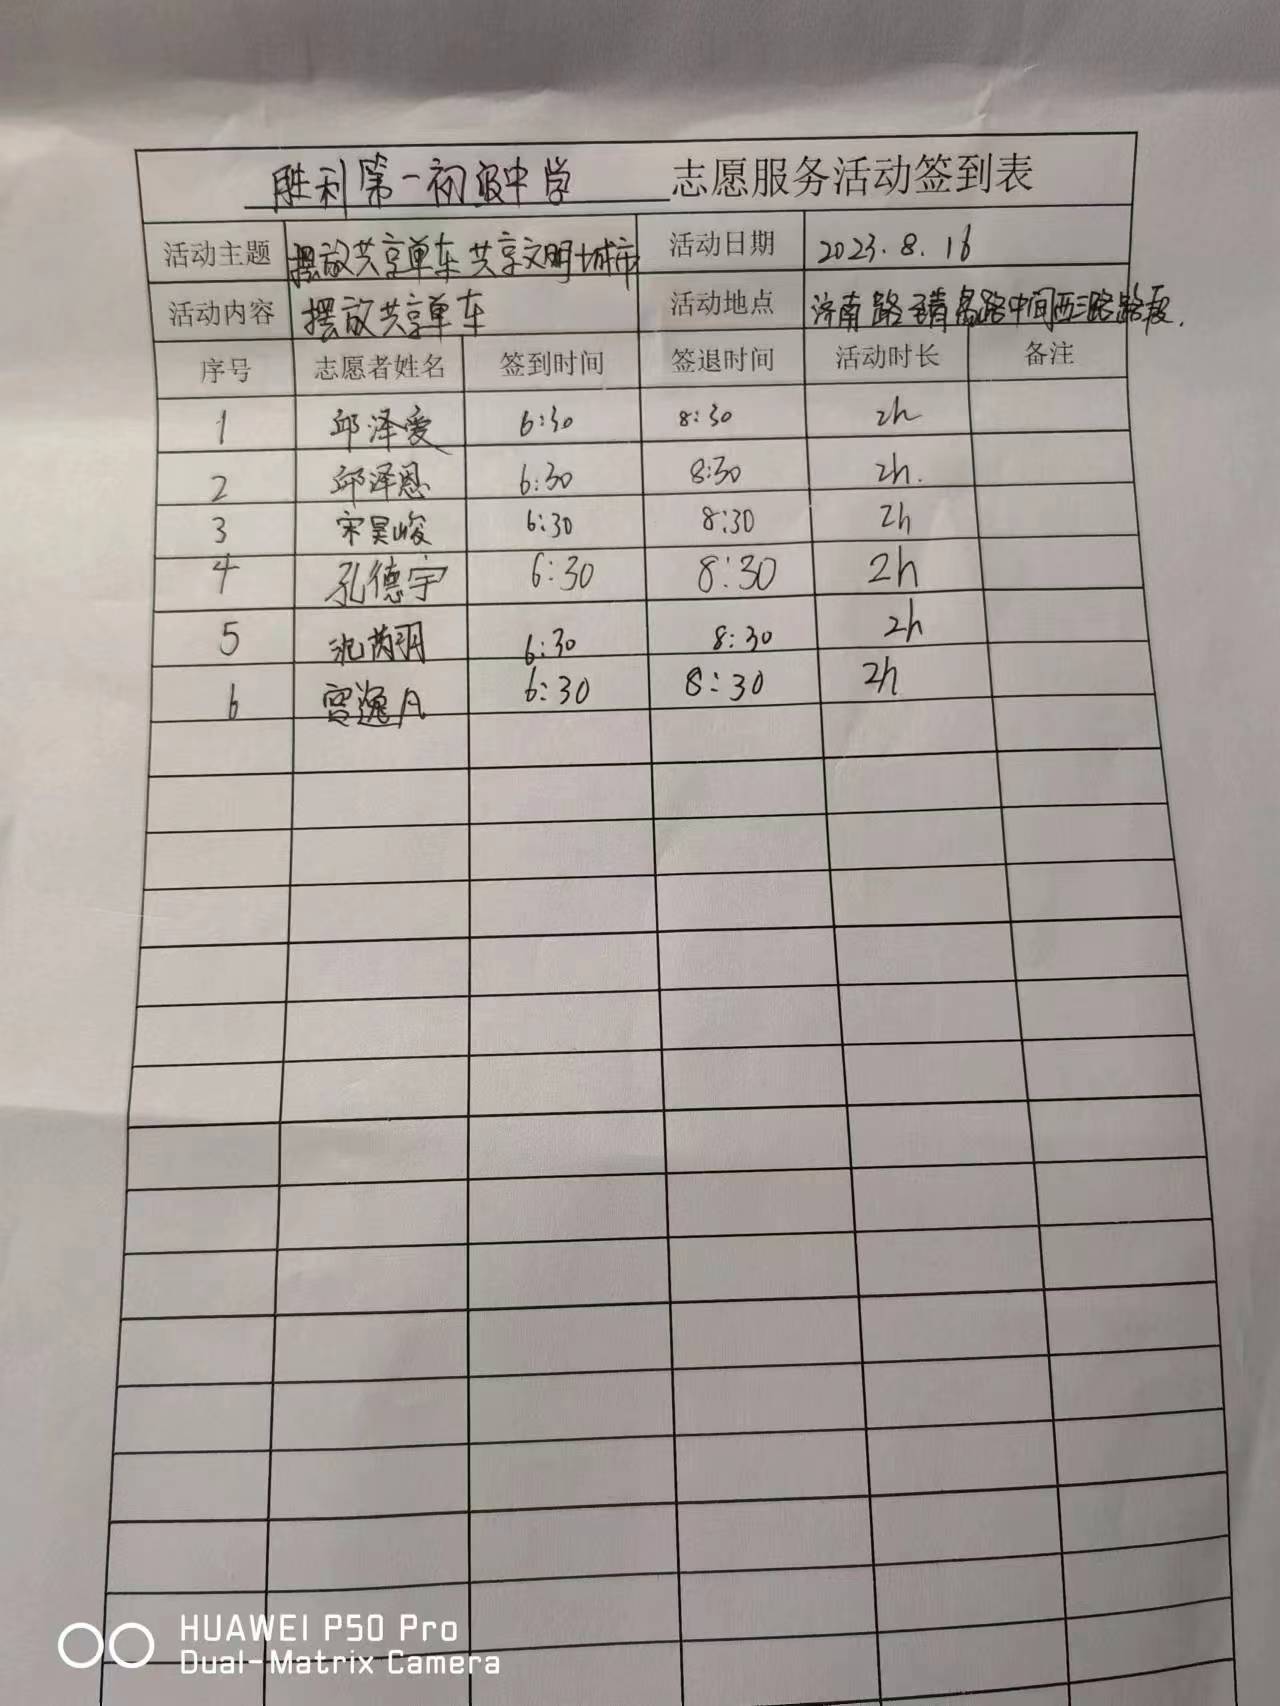 胜利第一初级中学 志愿服务活动签到表
活动主题 摆放共享单车 共享文明城市 活动日期 2023.8.16
活动内容 摆放共享单车 活动地点 济南路至青岛路中间西三路路段.
序号 志愿者姓名 签到时间 签退时间 活动时长 备注
1 邱泽爱 6:30 8:30 2h
2 邱泽恩 6:30 8:30 2h.
3 宋昊峻 6:30 8:30 2h
4 孔德宇 6:30 8:30 2h
5 6:30 8:30 2h
6 贾逸凡 6:30 8:30 2h
HUAWEI P50 Pro
Dual-Matrix Camera